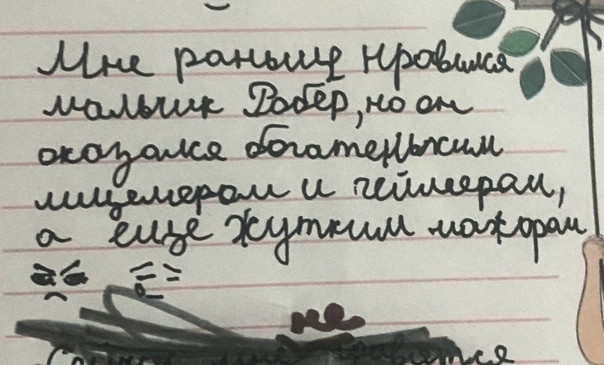 Мне раньше нравился
мальчик Робер, но он
оказался богатеньким
лицемером и геймером,
а еще жутким мажором
не
мне нравится